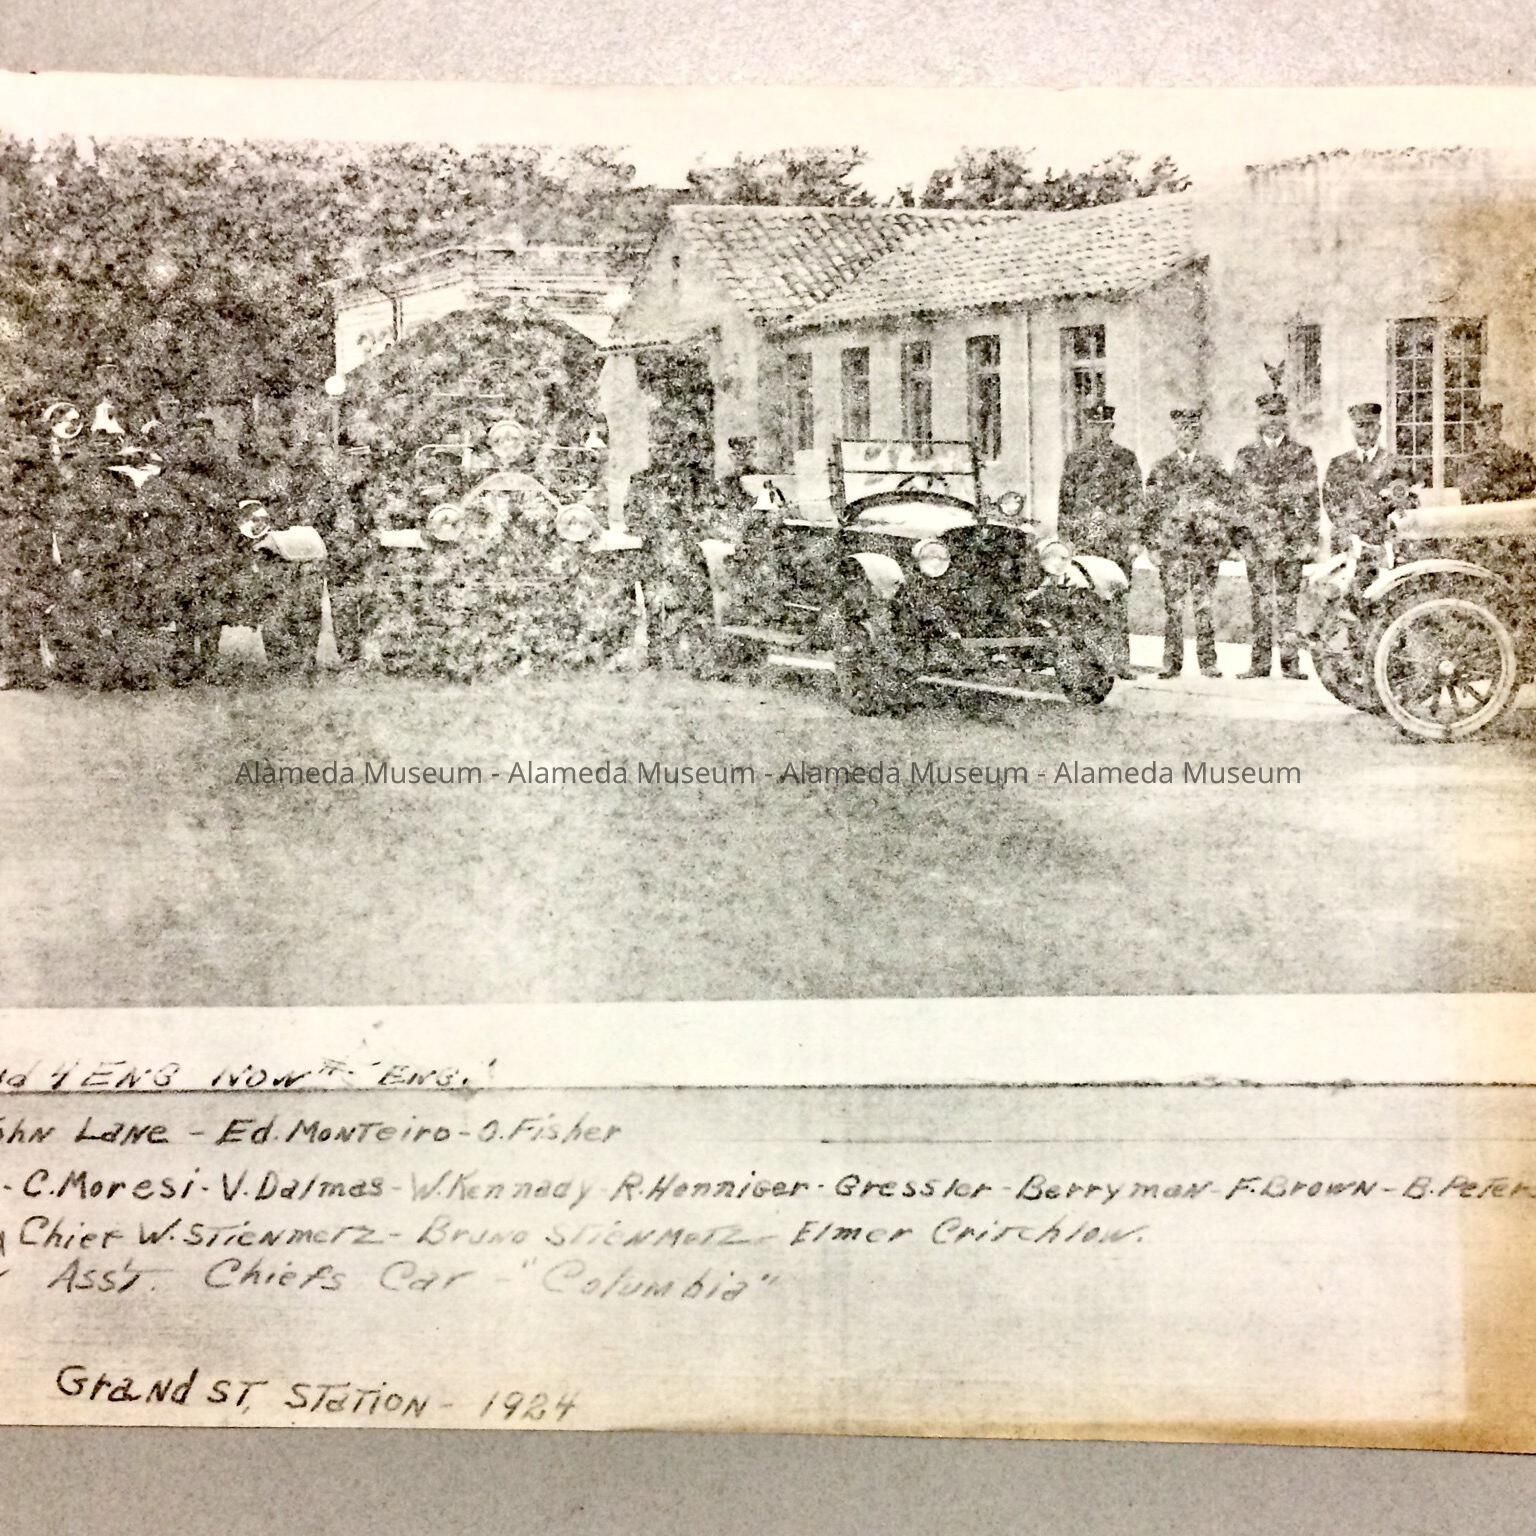 Alameda Museum - Alameda Museum - Alameda Museum - Alameda Museum
4 ENG NOW "ENG."
Lane - Ed. Monteiro - O. Fisher
- C. Moresi - V. Dalmas - W. Kennady - R. Henniger - Gressler - Berryman - F. Brown - B. Peters
Chief W. Stienmetz - Bruno Stienmetz - Elmer Critchlow.
Ass't. Chiefs Car "Columbia"
Grand St. Station - 1924